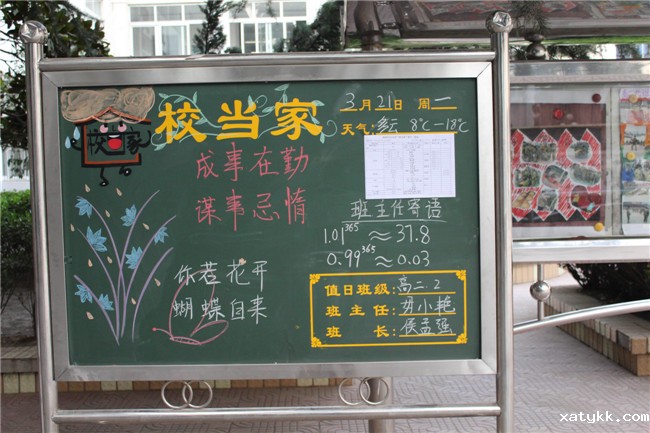 校当家
校当家
3月21日 周一
天气:多云 8℃—18℃
成事在勤
谋事忌惰
班主任寄语
1.01³⁶⁵≈37.8
0.99³⁶⁵≈0.03
你若花开
蝴蝶自来
值日班级:高二.2
班主任:毋小艳
班长:侯孟强
xatykk.com